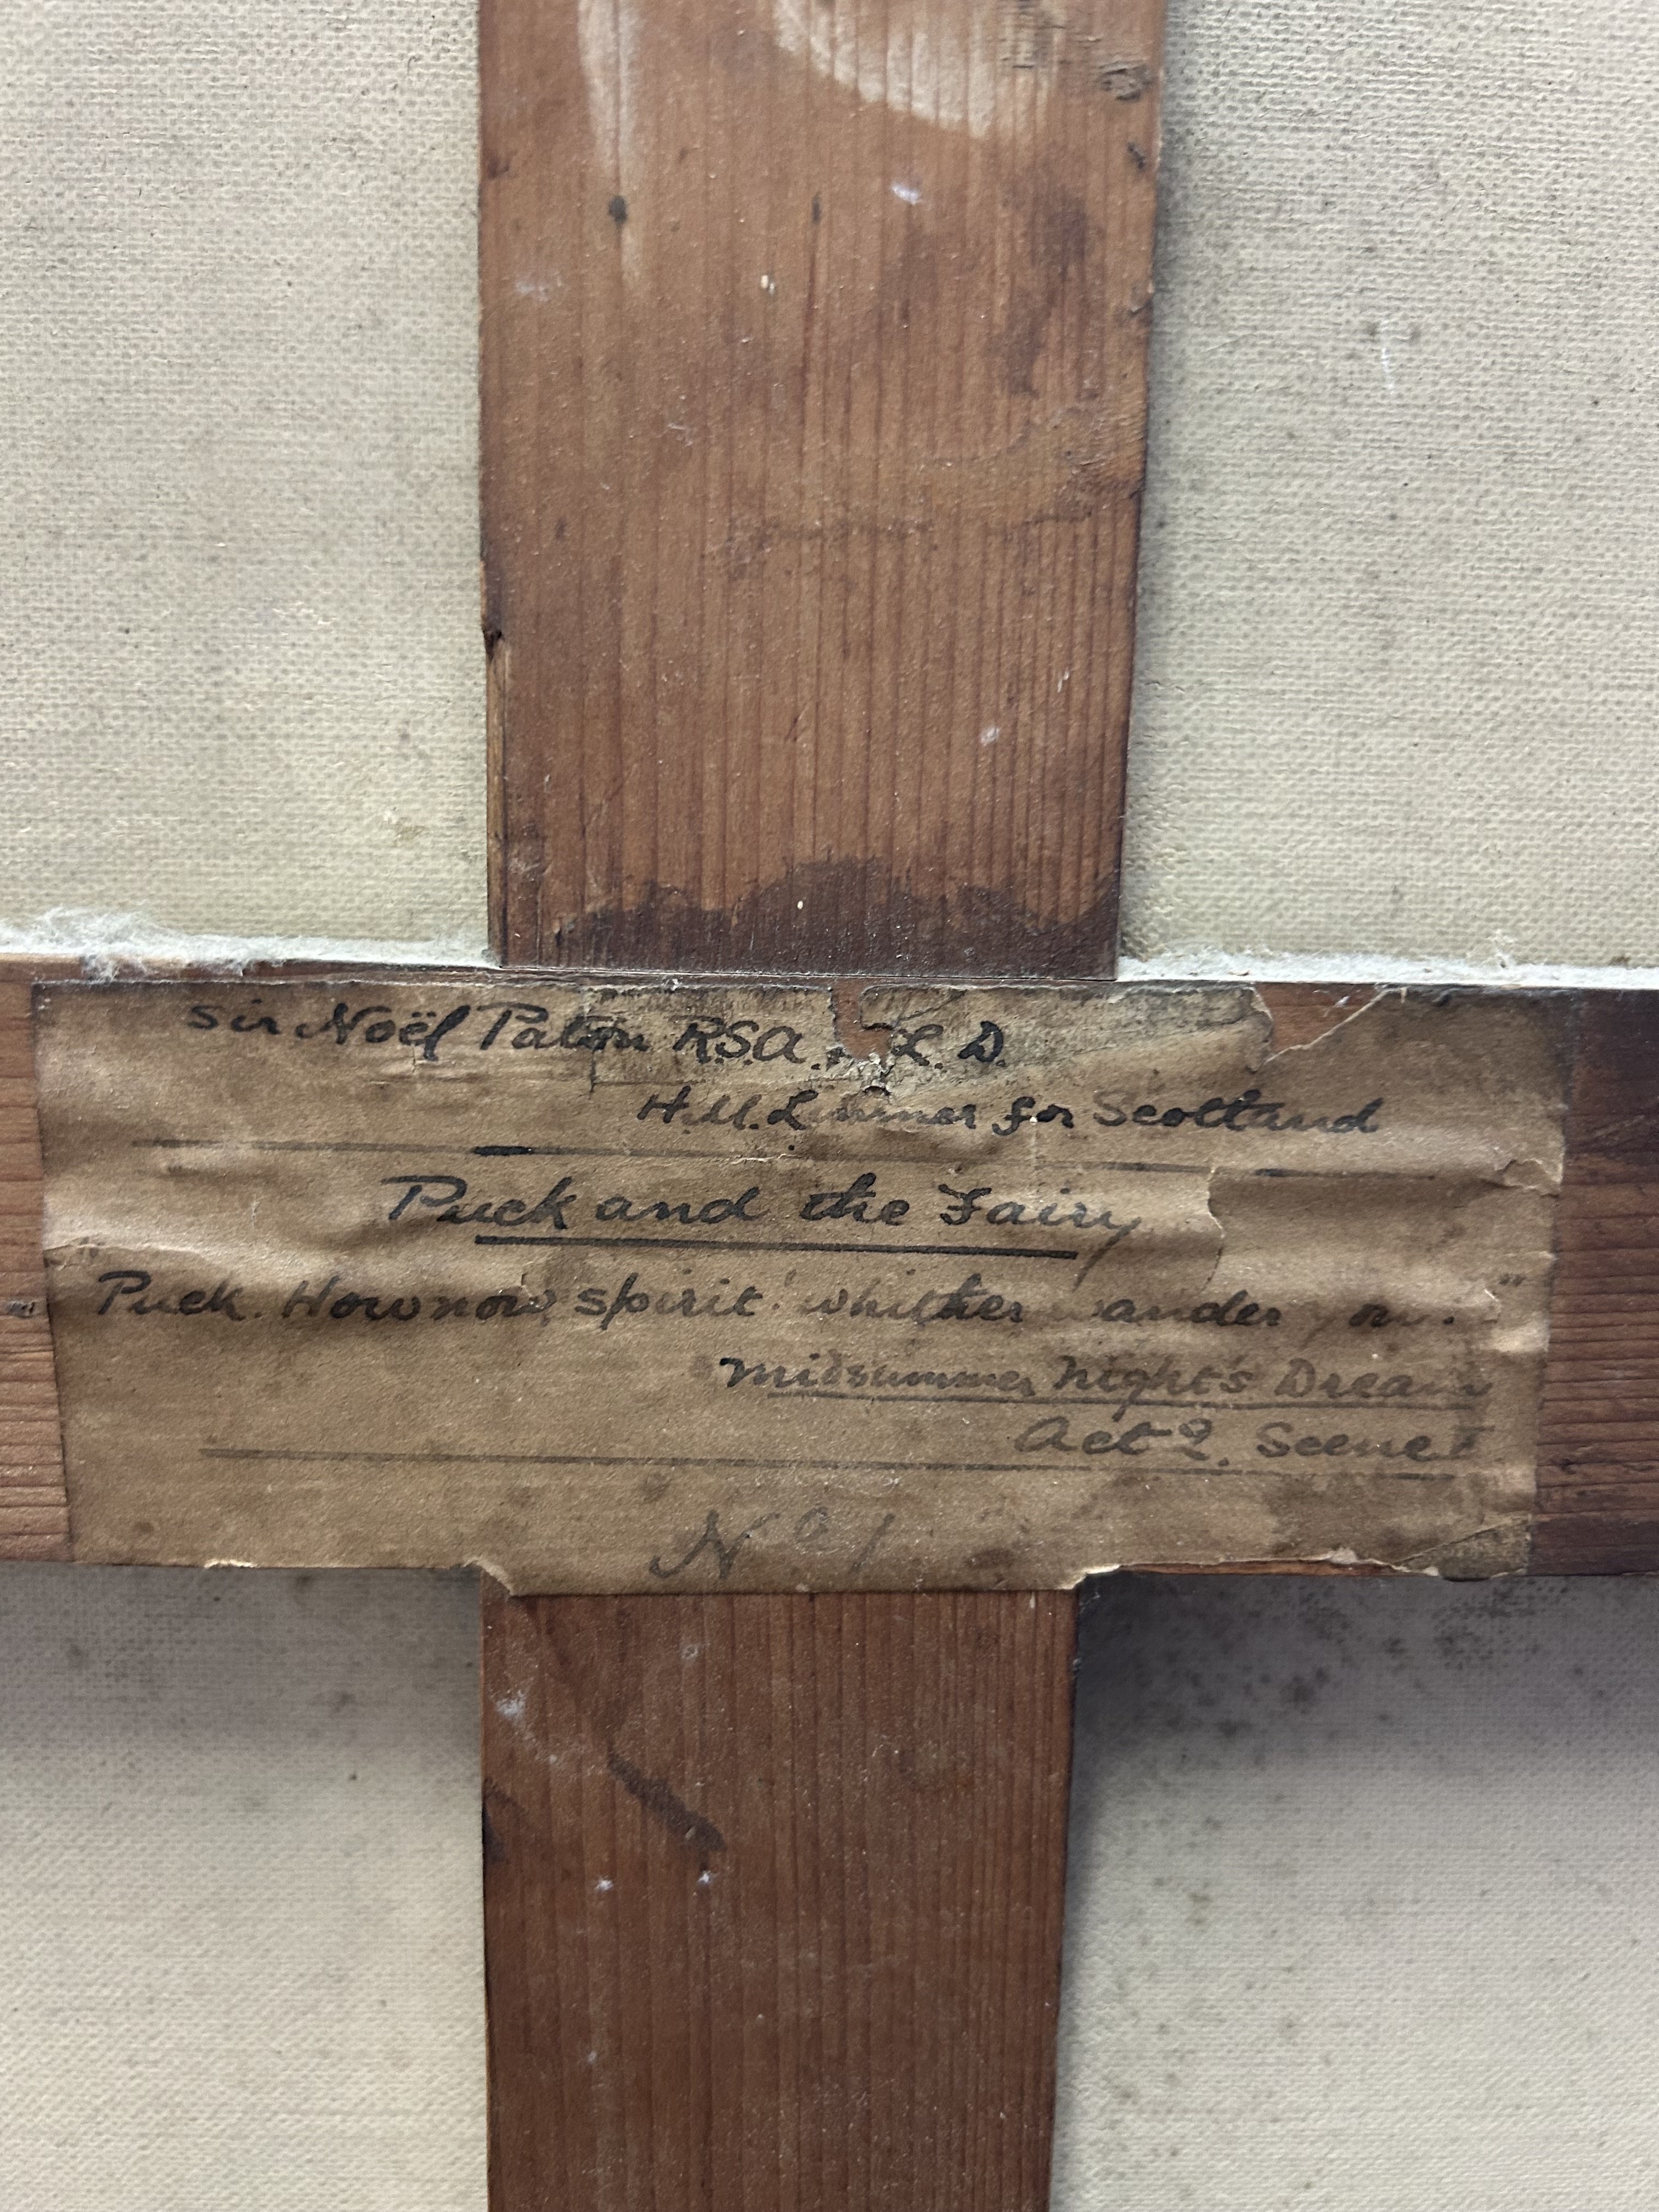 Sir Noël Paton R.S.A. L. D.
H.M. Limner for Scotland
Puck and the Fairy
Puck. How now, spirit! whither wander you."
Midsummer Night's Dream
Act 2. Scene I
No 1